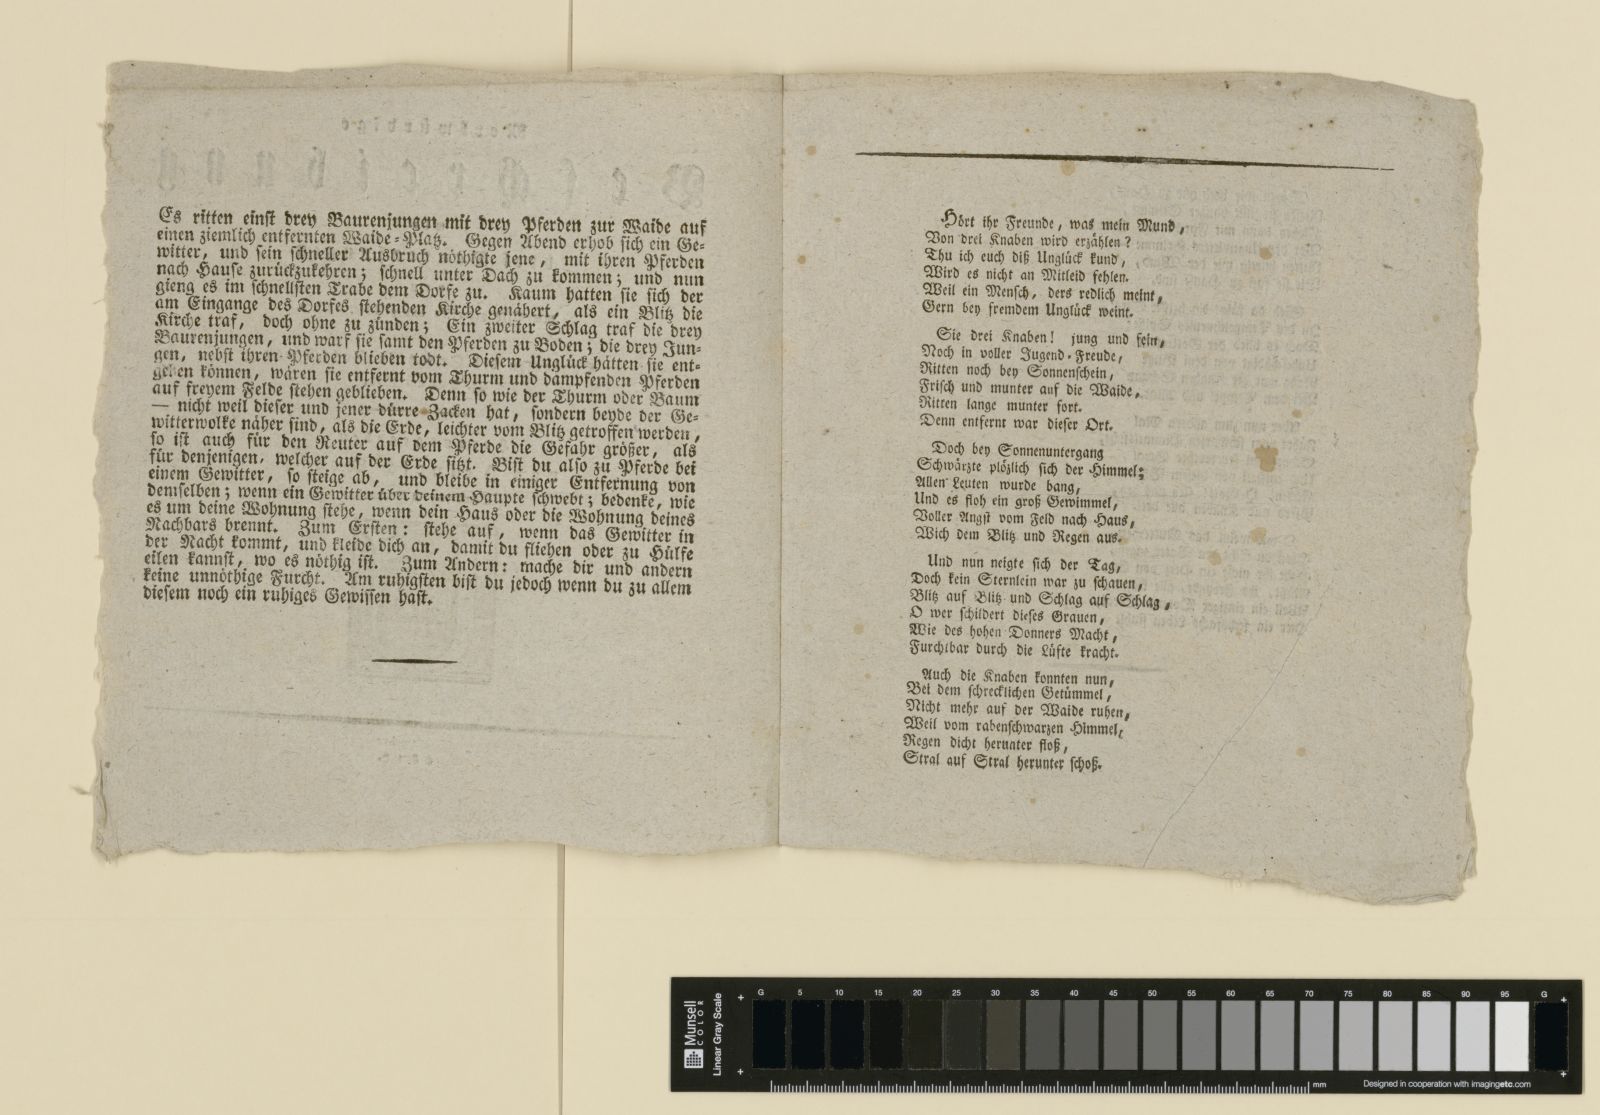 Es ritten einst drey Baurenjungen mit drey Pferden zur Waide auf
einen ziemlich entfernten Waide-Platz. Gegen Abend erhob sich ein Ge-
witter, und sein schneller Ausbruch nöthigte jene, mit ihren Pferden
nach Hause zurückzukehren; schnell unter Dach zu kommen; und nun
gieng es im schnellsten Trabe dem Dorfe zu. Kaum hatten sie sich der
am Eingange des Dorfes stehenden Kirche genähert, als ein Blitz die
Kirche traf, doch ohne zu zünden; Ein zweiter Schlag traf die drey
Baurenjungen, und warf sie samt den Pferden zu Boden; die drey Jun-
gen, nebst ihren Pferden blieben todt. Diesem Unglück hätten sie ent-
gehen können, wären sie entfernt vom Thurm und dampfenden Pferden
auf freyem Felde stehen geblieben. Denn so wie der Thurm oder Baum
— nicht weil dieser und jener dürre Zacken hat, sondern beyde der Ge-
witterwolke näher sind, als die Erde, leichter vom Blitz getroffen werden,
so ist auch für den Reuter auf dem Pferde die Gefahr größer, als
für denjenigen, welcher auf der Erde sitzt. Bist du also zu Pferde bei
einem Gewitter, so steige ab, und bleibe in einiger Entfernung von
demselben; wenn ein Gewitter über deinem Haupte schwebt; bedenke, wie
es um deine Wohnung stehe, wenn dein Haus oder die Wohnung deines
Nachbars brennt. Zum Ersten: stehe auf, wenn das Gewitter in
der Nacht kommt, und kleide dich an, damit du fliehen oder zu Hülfe
eilen kannst, wo es nöthig ist. Zum Andern: mache dir und andern
keine unnöthige Furcht. Am ruhigsten bist du jedoch wenn du zu allem
diesem noch ein ruhiges Gewissen hast.
Hört ihr Freunde, was mein Mund,
Von drei Knaben wird erzählen?
Thu ich euch diß Unglück kund,
Wird es nicht an Mitleid fehlen.
Weil ein Mensch, ders redlich meint,
Gern bey fremdem Unglück weint.
Sie drei Knaben! jung und fein,
Noch in voller Jugend-Freude,
Ritten noch bey Sonnenschein,
Frisch und munter auf die Waide,
Ritten lange munter fort.
Denn entfernt war dieser Ort.
Doch bey Sonnenuntergang
Schwärzte plözlich sich der Himmel;
Allen Leuten wurde bang,
Und es floh ein groß Gewimmel,
Voller Angst vom Feld nach Haus,
Wich dem Blitz und Regen aus.
Und nun neigte sich der Tag,
Doch kein Sternlein war zu schauen,
Blitz auf Blitz und Schlag auf Schlag,
O wer schildert dieses Grauen,
Wie des hohen Donners Macht,
Furchtbar durch die Lüfte kracht.
Auch die Knaben konnten nun,
Bei dem schrecklichen Getümmel,
Nicht mehr auf der Waide ruhen,
Weil vom rabenschwarzen Himmel,
Regen dicht herunter floß,
Stral auf Stral herunter schoß.
Munsell
COLOR
Linear Gray Scale
G 5 10 15 20 25 30 35 40 45 50 55 60 65 70 75 80 85 90 95 G
mm
Designed in cooperation with imagingetc.com